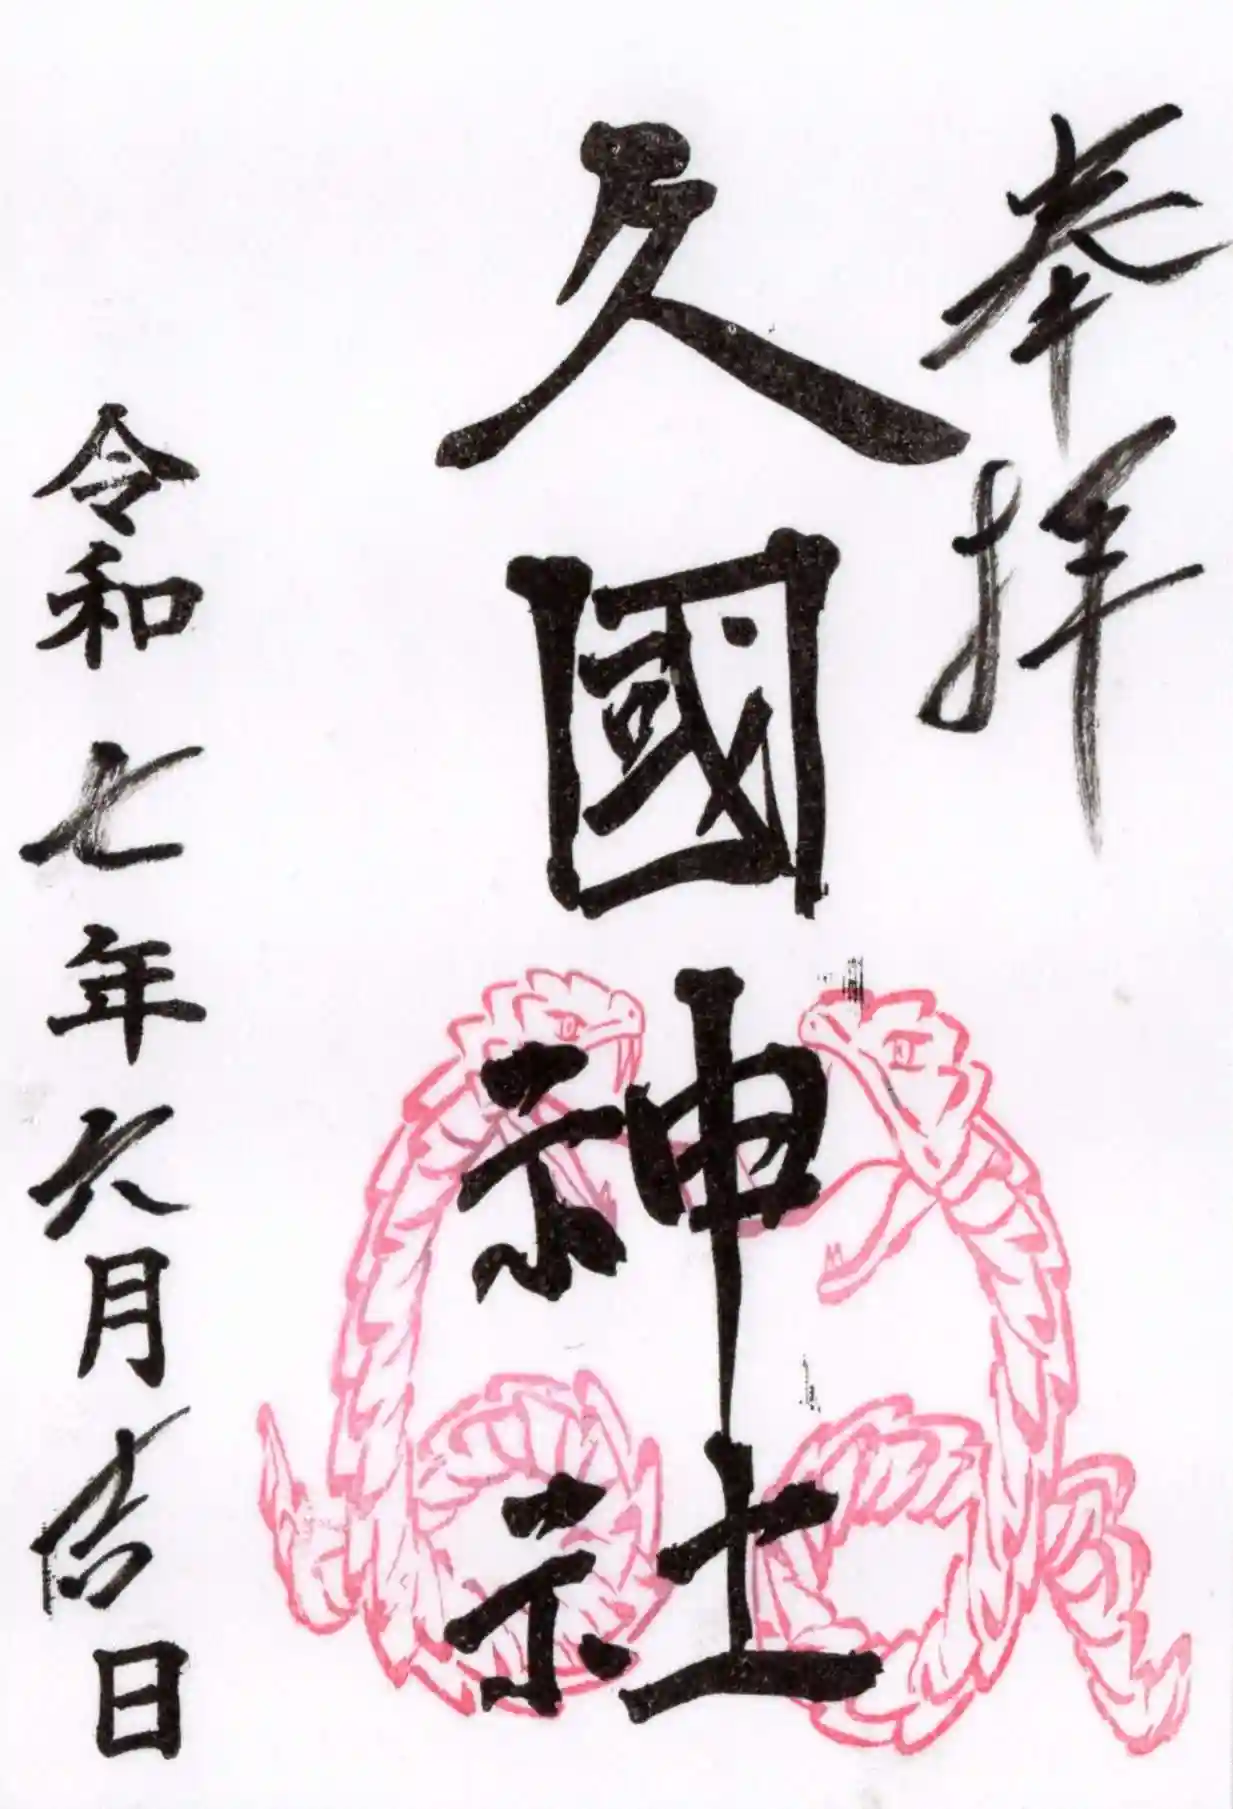 奉拝
久國神社
令和七年六月吉日